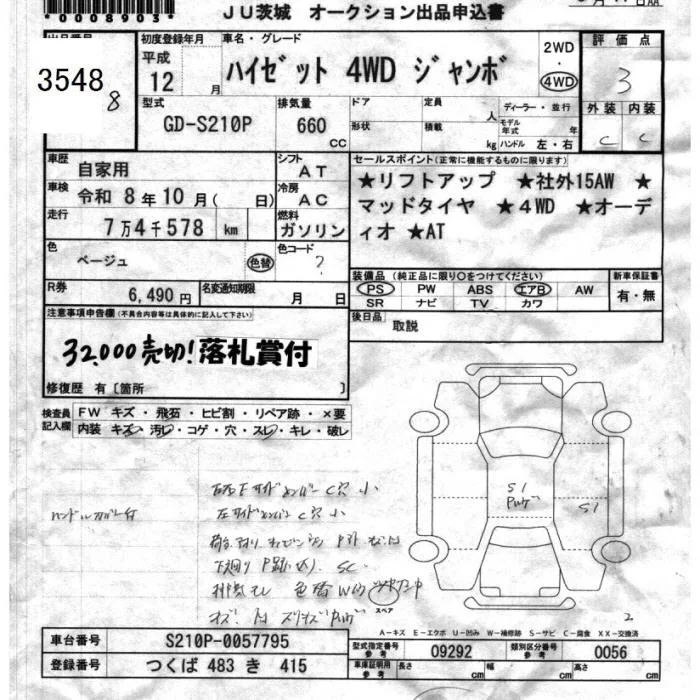 *0008903*
JU茨城 オークション出品申込書
初度登録年月
車名・グレード
評価点
平成
12
月
ハイゼット 4WD ジャンボ
2WD
・
4WD
3
3548
8
型式
GD-S210P
排気量
660
CC
ドア
定員
人
ディーラー・並行
外装
内装
形状
積載
kg
モデル年式
年
ハンドル 左・右
C
C
車歴
自家用
シフト
AT
セールスポイント(正常に機能するものに限ります)
車検
令和 8年10月( 日)
冷房
AC
★リフトアップ ★社外15AW ★
マッドタイヤ ★4WD ★オーデ
ィオ ★AT
走行
7万4千578
km
燃料
ガソリン
色
ベージュ
色替
色コード
?
装備品(純正品に限り○をつけてください)
新車保証書
PS PW ABS エアB AW
SR ナビ TV カワ
有・無
R券
6,490円
名変通知期限
月 日
後日品
取説
注意事項申告欄(不具合内容等は具体的に記入して下さい)
32,000売切! 落札賞付
修復歴 有〔箇所 〕
検査員
記入欄
FW キズ・飛石・ヒビ割・リペア跡・×要
内装 キズ・汚レ・コゲ・穴・スレ・キレ・破レ
ハンドルカバー付
C穴 小
C穴 小
下廻り
色替
スペア
S1
S1
2
A-キズ E-エクボ U-凹み W-補修跡 S-サビ C-腐食 XX-交換済
車台番号
S210P-0057795
型式指定番号
参考
09292
類別区分番号
参考
0056
登録番号
つくば 483 き 415
車庫証明用
参考
長さ
cm
幅
cm
高さ
cm